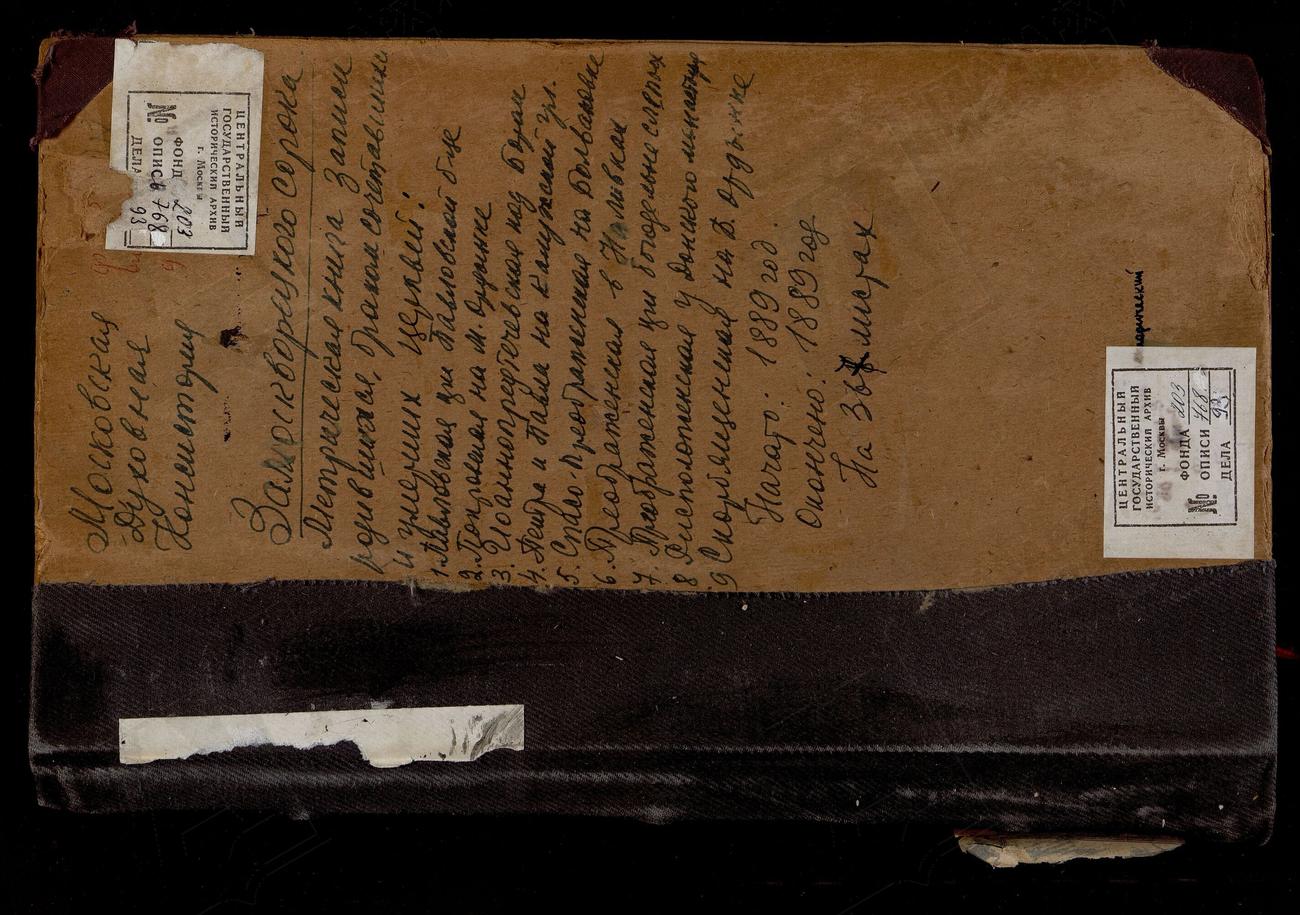 Московская
Духовная
Консистория
Замоскворецкого сорока.
Метрическая книга записи
родившихся, браком сочетавшихся
и умерших церквей:
1. Павловская при Павловской б-це
2. Покровская на М. Ордынке
3. Иоанно предтечевская под Бором
4. Петра и Павла на Калужской ул.
5. Спасо-Преображенская на Болвановке
6. Преображенская в Наливках
7. Преображенская при богадельне слепых
8 Ризположенская у Донского монастыря
9 Скорбященская на Б. Ордынке
Начато: 1889 год.
Окончено: 1889 год
На листах
ЦЕНТРАЛЬНЫЙ
ГОСУДАРСТВЕННЫЙ
ИСТОРИЧЕСКИЙ АРХИВ
г. Москвы
ФОНД 203
№ ОПИСЬ 768
ДЕЛА 93
ЦЕНТРАЛЬНЫЙ
ГОСУДАРСТВЕННЫЙ
ИСТОРИЧЕСКИЙ АРХИВ
г. Москвы
ФОНДА 203
№ ОПИСИ 768
ДЕЛА 93